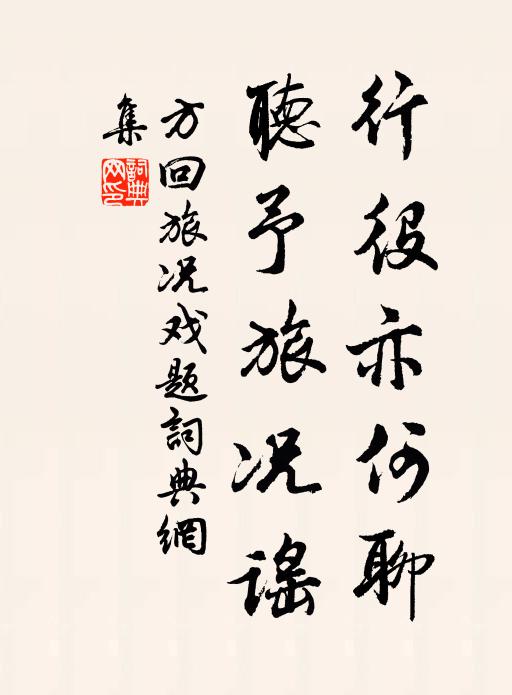 行役亦何聊
聽予旅况謠
方回旅况戏题詞典網
集
詞典網印